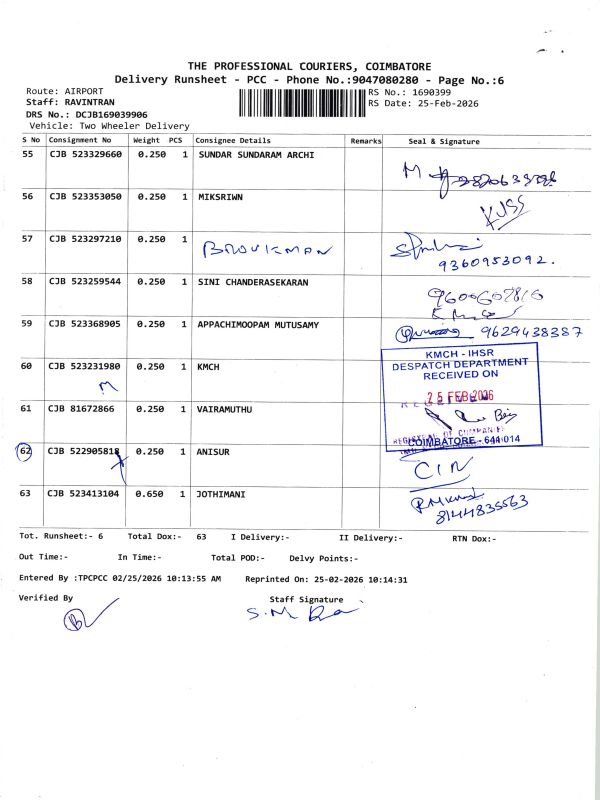 THE PROFESSIONAL COURIERS, COIMBATORE
Delivery Runsheet - PCC - Phone No.:9047080280 - Page No.:6
Route: AIRPORT
RS No.: 1690399
Staff: RAVINTRAN
RS Date: 25-Feb-2026
DRS No.: DCJB169039906
Vehicle: Two Wheeler Delivery
S No Consignment No Weight PCS Consignee Details Remarks Seal & Signature
55 CJB 523329660 0.250 1 SUNDAR SUNDARAM ARCHI
56 CJB 523353050 0.250 1 MIKSRIWN
57 CJB 523297210 0.250 1 BROUKMAN
9360953092.
58 CJB 523259544 0.250 1 SINI CHANDERASEKARAN
59 CJB 523368905 0.250 1 APPACHIMOOPAM MUTUSAMY 9629438387
60 CJB 523231980 0.250 1 KMCH
M
KMCH - IHSR
DESPATCH DEPARTMENT
RECEIVED ON
25 FEB 2026
COIMBATORE - 641 014
61 CJB 81672866 0.250 1 VAIRAMUTHU
62 CJB 522905818 0.250 1 ANISUR
63 CJB 523413104 0.650 1 JOTHIMANI
8144835563
Tot. Runsheet:- 6 Total Dox:- 63 I Delivery:- II Delivery:- RTN Dox:-
Out Time:- In Time:- Total POD:- Delvy Points:-
Entered By :TPCPCC 02/25/2026 10:13:55 AM Reprinted On: 25-02-2026 10:14:31
Verified By Staff Signature